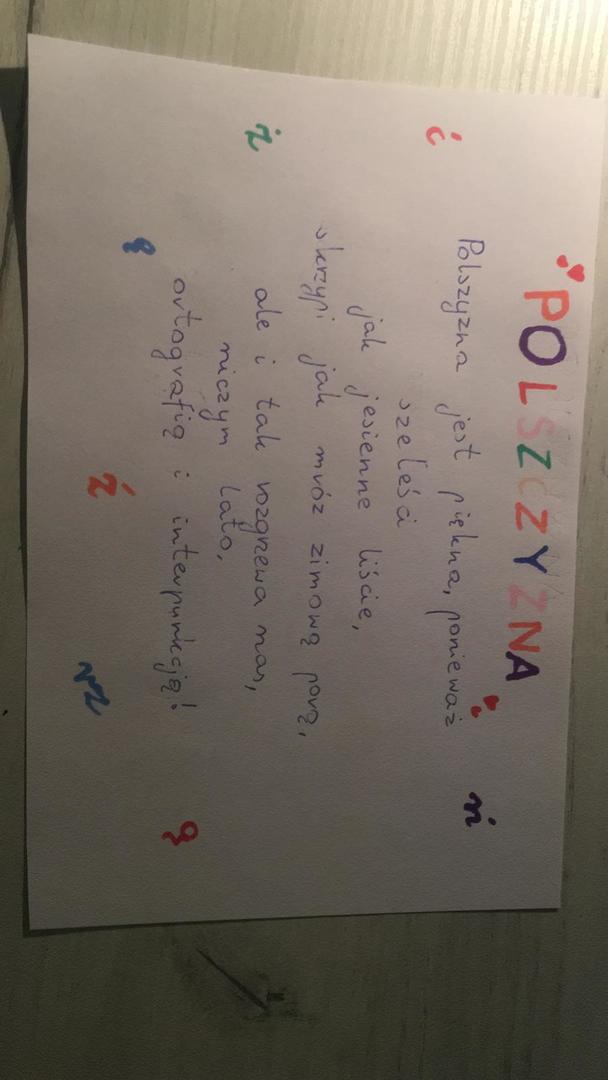 POLSZCZYZNA
ć
ń
Polszyzna jest piękna, ponieważ
szeleści
jak jesienne liście,
skrzypi jak mróz zimową porą,
ż
ale i tak rozgrzewa nas,
niczym lato,
ortografią i interpunkcją!
ę
ą
ź
rz